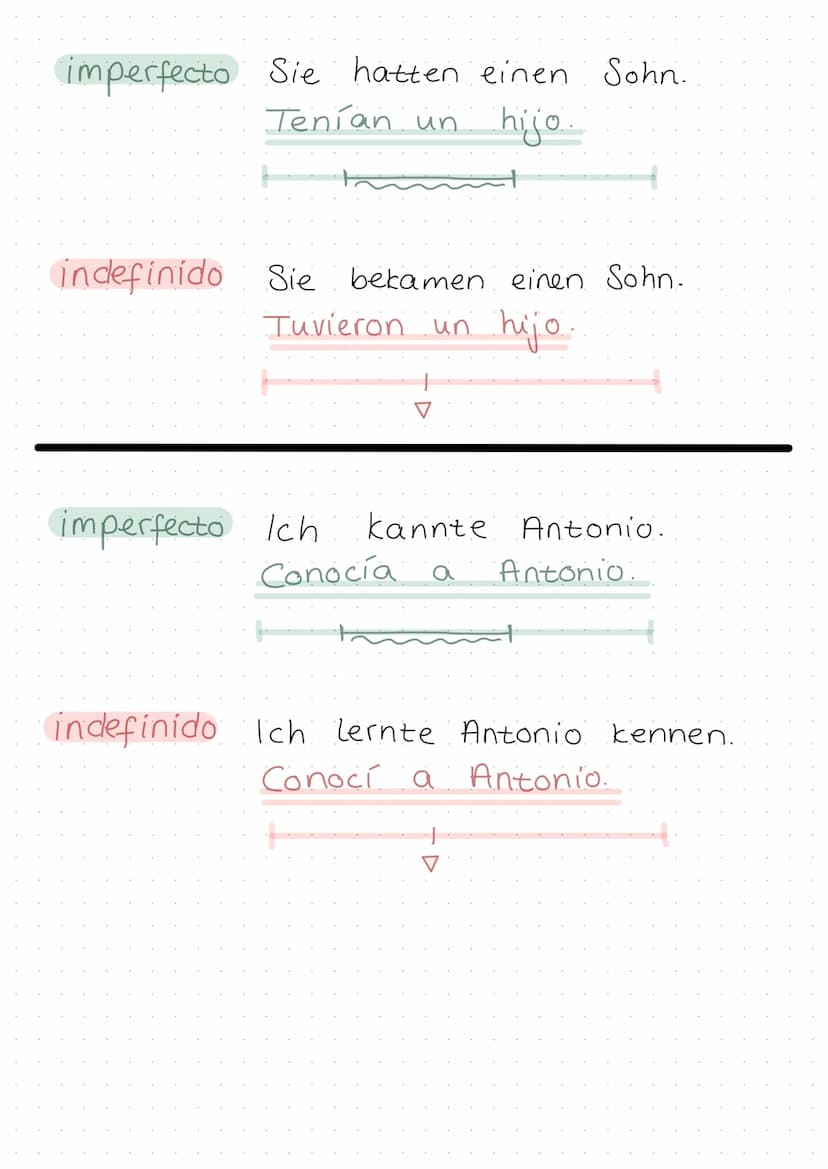 imperfecto Sie hatten einen Sohn.
Tenían un hijo.
indefinido Sie bekamen einen Sohn.
Tuvieron un hijo.
imperfecto Ich kannte Antonio.
Conocía a Antonio.
indefinido Ich lernte Antonio kennen.
Conocí a Antonio.